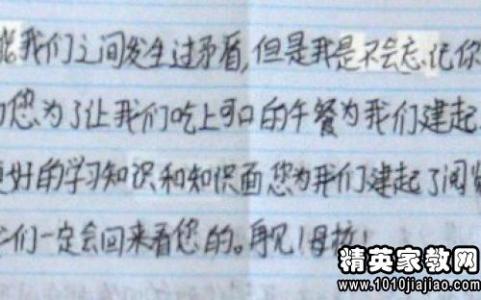 我们之间发生过矛盾,但是我是不会忘记你
您为了让我们吃上可口的午餐为我们建起
好的学习知识和知识面您为我们建起了阅
们一定会回来看您的。再见!母校!
精英家教网
www.1010jiajiao.com